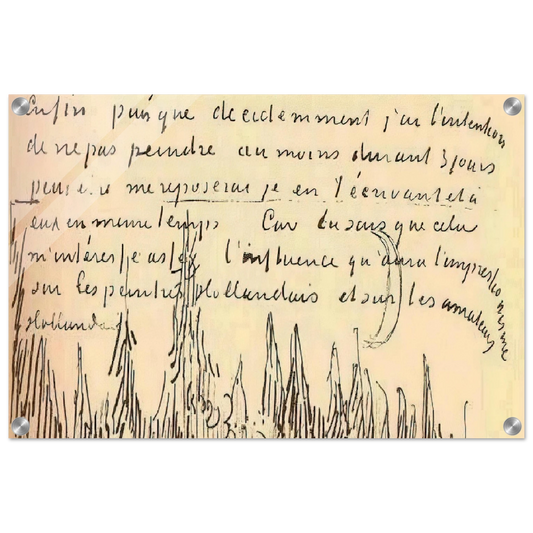 Enfin puisque decidemment j'ai l'intention
de ne pas peindre au moins durant 3 jours
peut être me reposerai je en t'écrivant et à
eux en meme temps Car tu sais que cela
m'intéresse assez l'influence qu'aura l'impressionisme
sur les peintres Hollandais et sur les amateurs
Hollandais